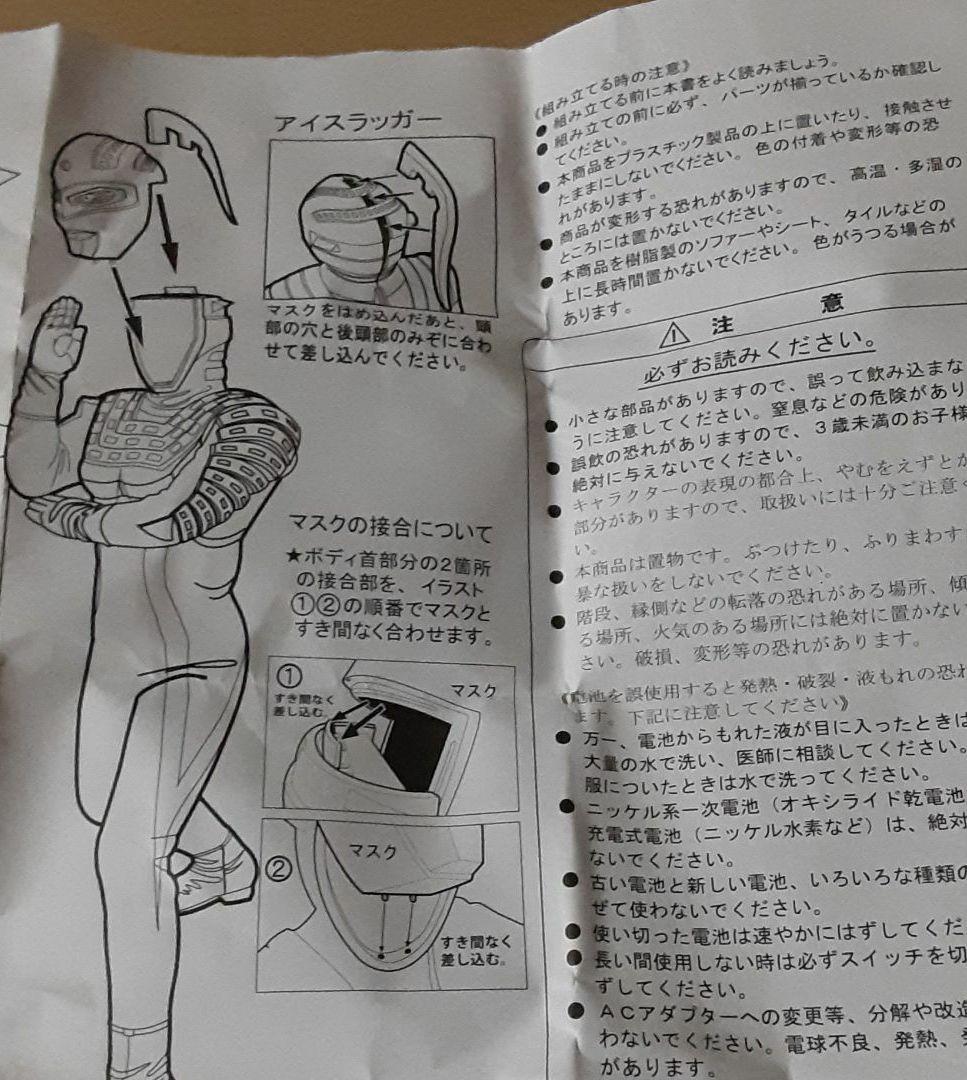 アイスラッガー
マスクをはめ込んだあと、頭
部の穴と後頭部のみぞに合わ
せて差し込んでください。
マスクの接合について
★ボディ首部分の2箇所
の接合部を、イラスト
①②の順番でマスクと
すき間なく合わせます。
①
すき間なく
差し込む。
マスク
②
マスク
すき間なく
差し込む。
《組み立てる時の注意》
● 組み立てる前に本書をよく読みましょう。
● 組み立ての前に必ず、パーツが揃っているか確認し
てください。
● 本商品をプラスチック製品の上に置いたり、接触させ
たままにしないでください。色の付着や変形等の恐
れがあります。
● 商品が変形する恐れがありますので、高温・多湿の
ところには置かないでください。
● 本商品を樹脂製のソファーやシート、タイルなどの
上に長時間置かないでください。色がうつる場合が
あります。
注 意
必ずお読みください。
● 小さな部品がありますので、誤って飲み込まな
うに注意してください。窒息などの危険があり
● 誤飲の恐れがありますので、3歳未満のお子様
絶対に与えないでください。
● キャラクターの表現の都合上、やむをえずとが
部分がありますので、取扱いには十分ご注意く
い。
● 本商品は置物です。ぶつけたり、ふりまわす
暴な扱いをしないでください。
● 階段、縁側などの転落の恐れがある場所、傾
る場所、火気のある場所には絶対に置かない
さい。破損、変形等の恐れがあります。
《電池を誤使用すると発熱・破裂・液もれの恐れ
ます。下記に注意してください》
● 万一、電池からもれた液が目に入ったときは
大量の水で洗い、医師に相談してください。
服についたときは水で洗ってください。
● ニッケル系一次電池（オキシライド乾電池
充電式電池（ニッケル水素など）は、絶対
ないでください。
● 古い電池と新しい電池、いろいろな種類の
ぜて使わないでください。
● 使い切った電池は速やかにはずしてくだ
● 長い間使用しない時は必ずスイッチを切
ずしてください。
● ACアダプターへの変更等、分解や改造
わないでください。電球不良、発熱、
があります。